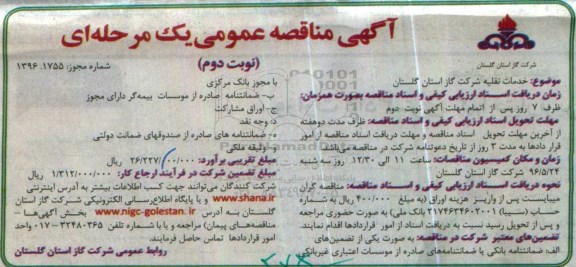 آگهی مناقصه عمومی یک مرحله‌ای
(نوبت دوم)
شماره مجوز: ۱۳۹۶.۱۷۵۵
شرکت گاز استان گلستان
موضوع: خدمات نقلیه شرکت گاز استان گلستان
زمان دریافت اسناد ارزیابی کیفی و اسناد مناقصه بصورت همزمان:
ظرف ۷ روز پس از اتمام مهلت آگهی نوبت دوم
مهلت تحویل اسناد ارزیابی کیفی و اسناد مناقصه: ظرف مدت دوهفته
از آخرین مهلت تحویل اسناد مناقصه و مهلت دریافت اسناد مناقصه از امور
قرار دادها به مدت ۳ روز از تاریخ دعوتنامه شرکت در مناقصه می‌باشد.
زمان و مکان کمیسیون مناقصات: ساعت ۱۱ الی ۱۲/۳۰ روز سه شنبه
۹۶/۵/۲۴ شرکت گاز استان گلستان
نحوه دریافت اسناد ارزیابی کیفی و اسناد مناقصه: مناقصه گران
میبایست پس از واریز هزینه اوراق (به مبلغ ۴۰۰/۰۰۰ ریال به شماره
حساب (سیبا) ۲۱۷۴۶۳۴۶۰۲۰۰۱ بانک ملی) به صورت حضوری مراجعه
و پس از تحویل رسید نسبت به دریافت اسناد از امور قراردادها اقدام نمایند.
تضمین‌های معتبر شرکت در مناقصه: به صورت یکی از تضمین‌های
الف: ضمانتنامه بانکی یا ضمانتنامه‌های صادره از موسسات اعتباری غیربانکی
با مجوز بانک مرکزی
ب- ضمانتنامه صادره از موسسات بیمه‌گر دارای مجوز
ج- اوراق مشارکت
د: وجه نقد
ه- ضمانتنامه های صادره از صندوقهای ضمانت دولتی
و- وثیقه ملکی
مبلغ تقریبی برآورد: ۲۶/۲۲۷/۰۰۰/۰۰۰ ریال
مبلغ تضمین شرکت در فرآیند ارجاع کار: ۱/۳۱۲/۰۰۰/۰۰۰ ریال
شرکت کنندگان می‌توانند جهت کسب اطلاعات بیشتر به آدرس اینترنتی
www.shana.ir و یا پایگاه اطلاع‌رسانی الکترونیکی شرکت گاز استان
گلستان به آدرس www.nigc-golestan.ir بخش آگهی‌ها -
مناقصه‌های پیمان) مراجعه و یا با شماره تلفن ۳۲۴۸۰۳۶۵-۰۱۷ واحد
امور قراردادها تماس حاصل فرمایند.
روابط عمومی شرکت گاز استان گلستان